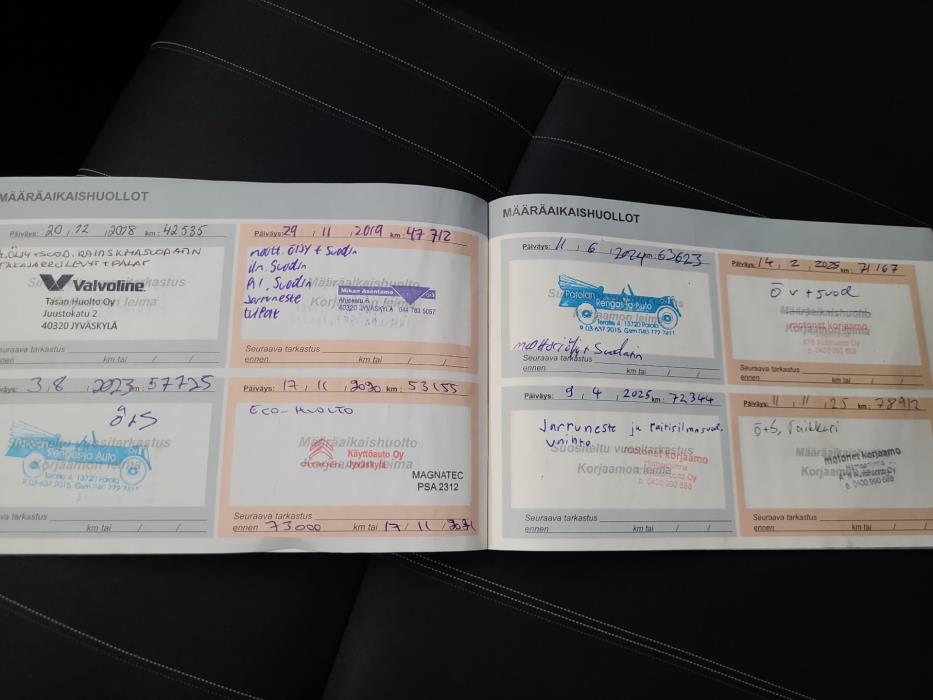 MÄÄRÄAIKAISHUOLLOT
Päiväys: 20 , 12 , 2018 km: 42 535
TAKAJARRULEVYT + PALAT
Valvoline
Tasan Huolto Oy
Juustokatu 2
40320 JYVÄSKYLÄ
Seuraava tarkastus
ennen km tai / /
Päiväys: 29 , 11 , 2019 km: 47 712
moott. öljy + Suodin
Iln. Suodin
Suodin
Jarruneste
Määräaikaishuolto
Korjaamon leima
Mikan Asentamo
40320 JYVÄSKYLÄ 044 783 5057
Seuraava tarkastus
ennen km tai / /
3,8 , 2023 : 57725
Ö+S
Rengas ja Auto
Tarastie 4, 13720 Parola
Seuraava tarkastus
ennen km tai / /
Päiväys: 17 , 11 , 2020 km: 53155
ECO-HUOLTO
Määräaikaishuolto
Käyttöauto Oy
Korjaamon leima
MAGNATEC
PSA 2312
Seuraava tarkastus
ennen 73000 km tai 17 / 11 / 2021
MÄÄRÄAIKAISHUOLLOT
Päiväys: 11 , 6 , 2024 km: 63623
Parolan
Rengas ja Auto
Korjaamon leima
Tarastie 4, 13720 Parola
P. 03-637 2015, Gsm 040 779 7411
moottoriöljy + Suodatin
Seuraava tarkastus
ennen km tai / /
Päiväys: 14 , 2 , 2025 km: 71167
Ö v + suod
Määräaikaishuolto
motonet korjaamo
Korjaamon leima
ATS Autohuolto Oy
p. 0400 990 688
Seuraava tarkastus
ennen km tai / /
Päiväys: 9 , 4 , 2025 km: 72344
Jarruneste ja raitisilmasuod.
vaihto
Suositeltu vuositarkastus
motonet korjaamo
Korjaamon leima
p. 0400 990 688
Seuraava tarkastus
ennen km tai / /
Päiväys: 11 , 11 , 25 km: 78912
Ö+S,
Määräaikaishuolto
motonet korjaamo
Korjaamon leima
p. 0400 990 688
Seuraava tarkastus
ennen km tai / /